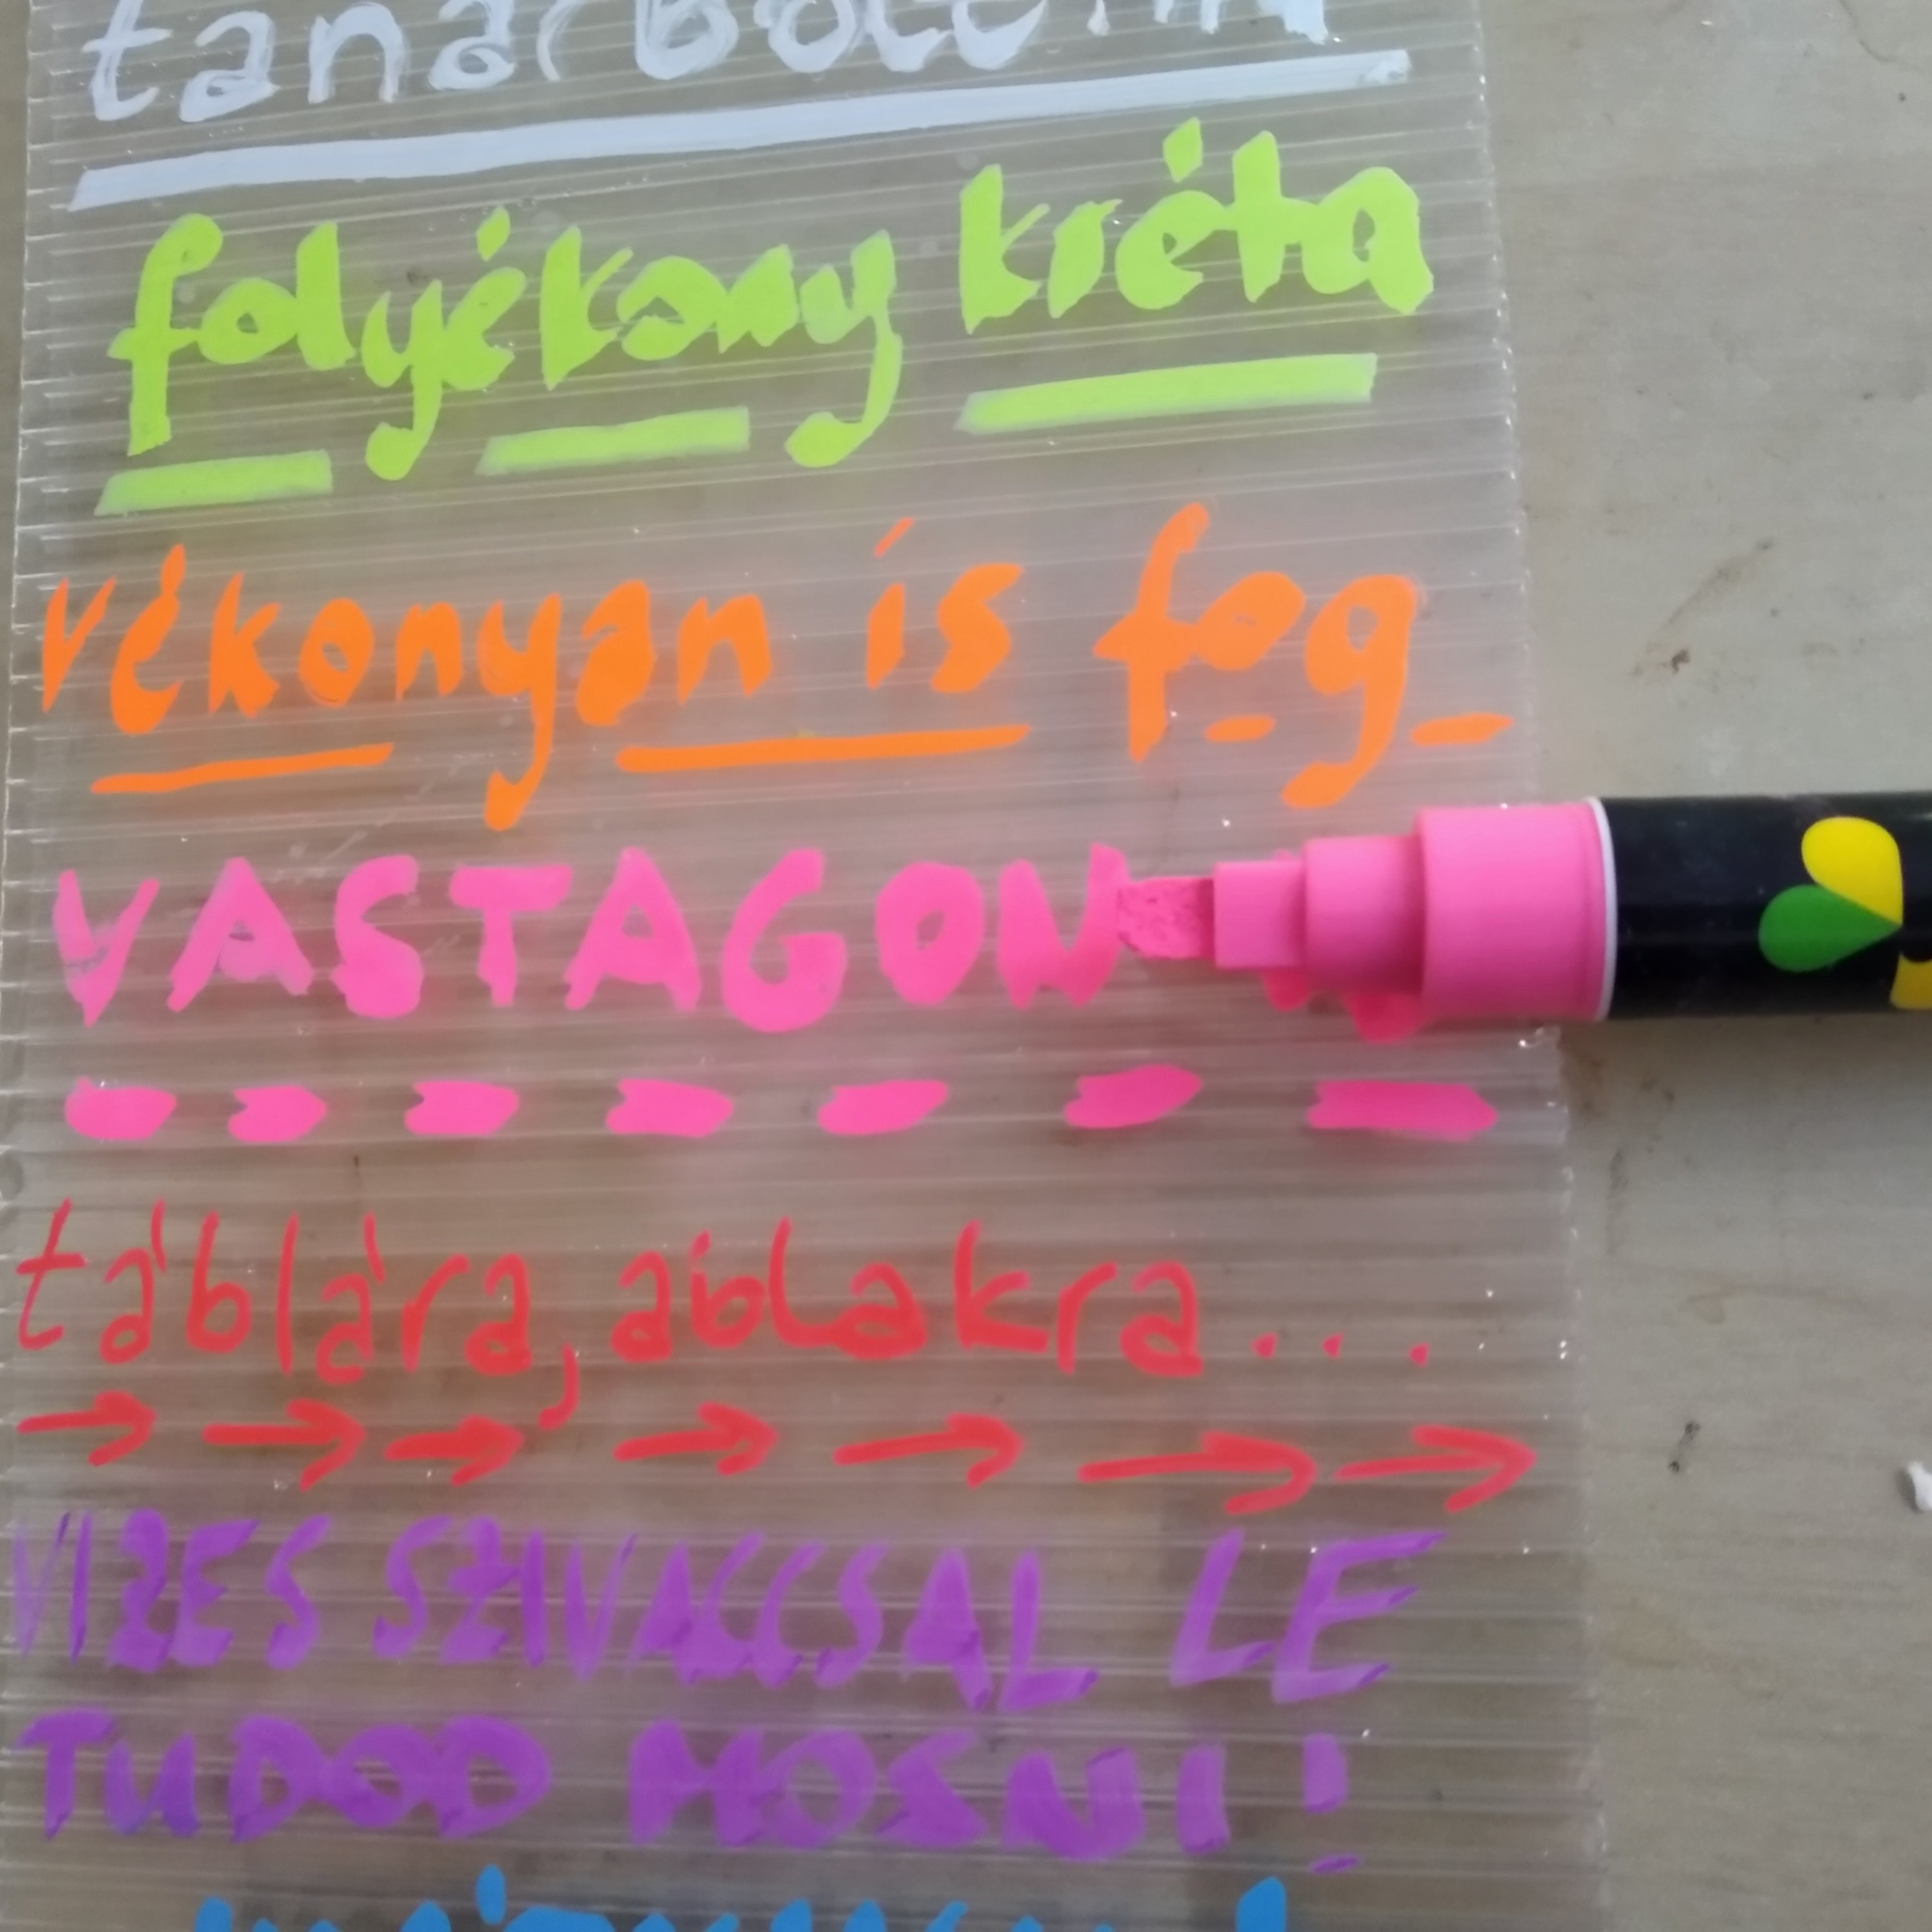 folyékony kréta
vékonyan is fog
VASTAGON
táblára, ablakra...
VIZES SZIVACCSAL LE
TUDOD MOSNI!